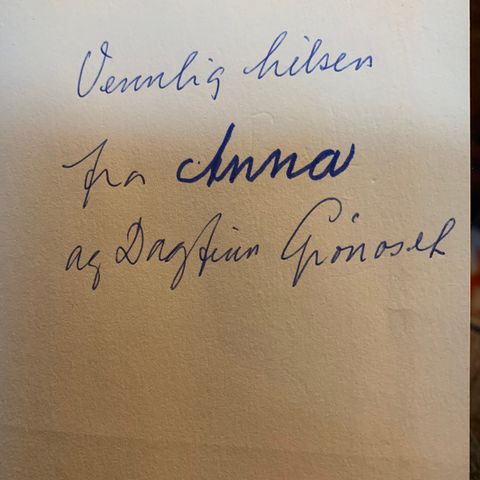 Vennlig hilsen
fra Anna
og Dagfinn Grønoset